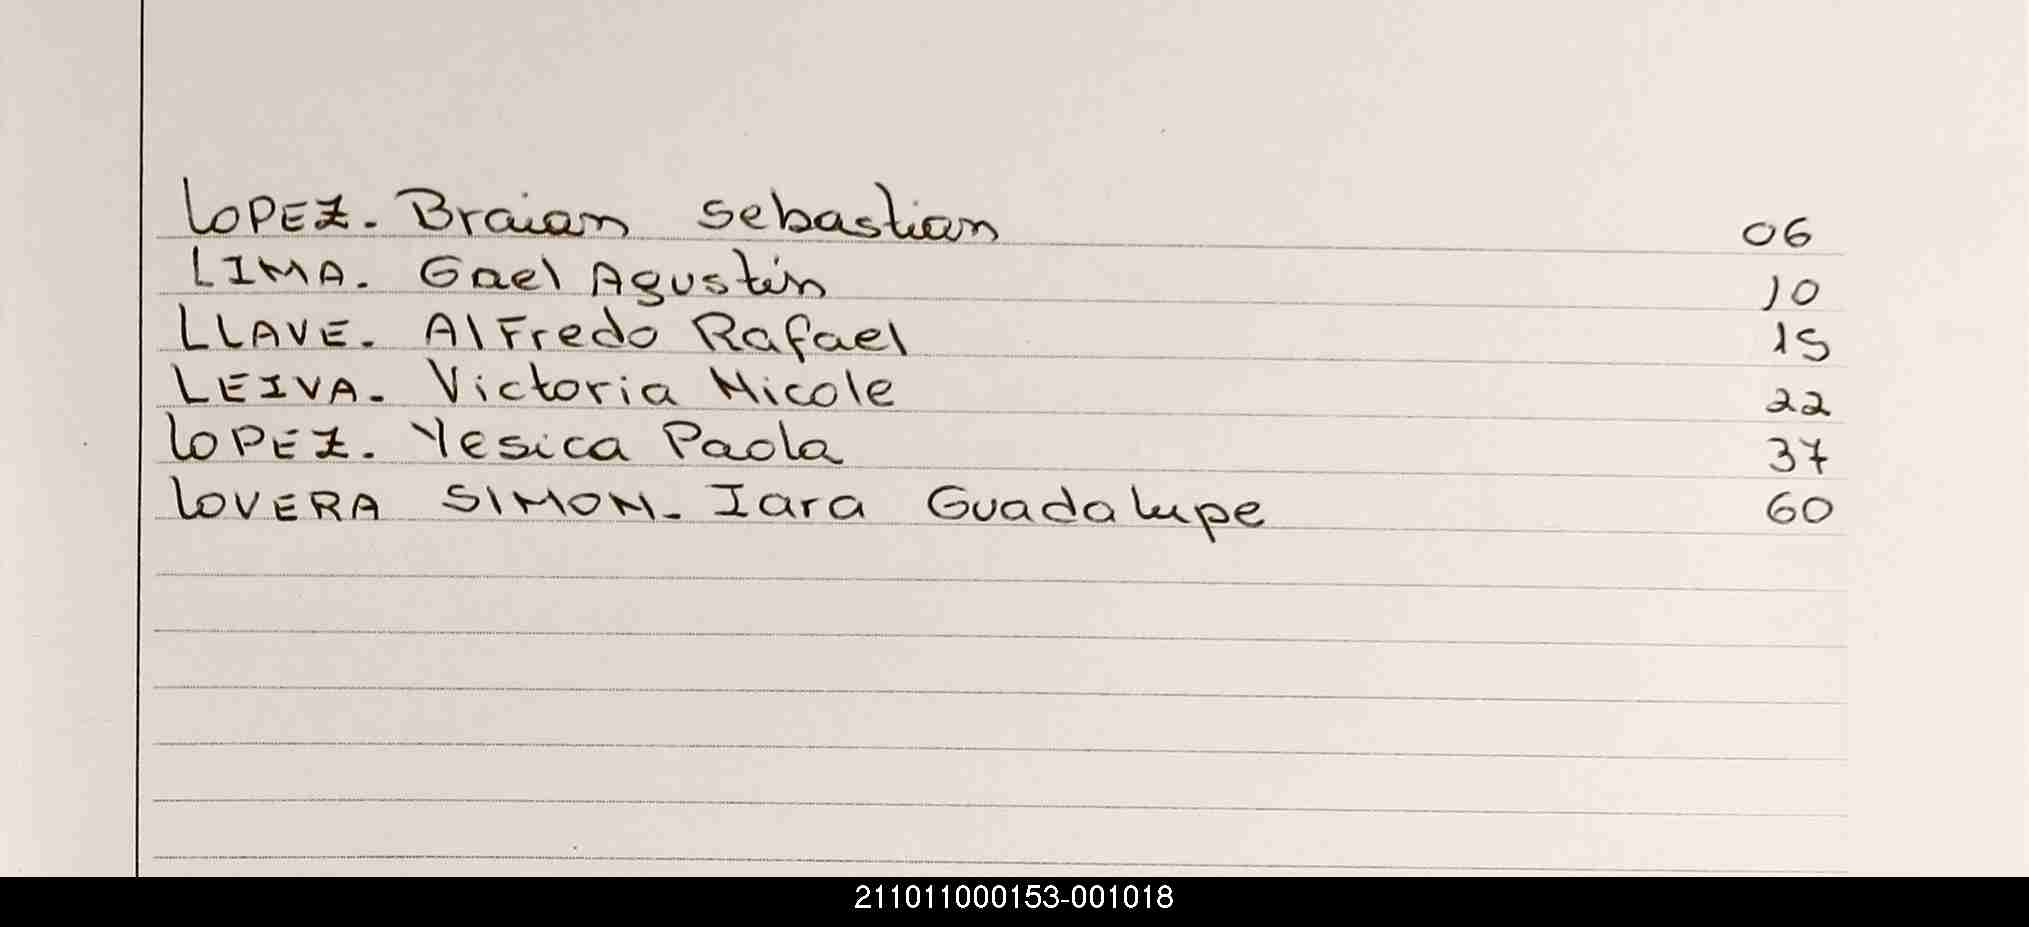 LOPEZ. Braian Sebastian 06
LIMA. Gael Agustin 10
LLAVE. Alfredo Rafael 15
LEIVA. Victoria Nicole 22
LOPEZ. Yesica Paola 37
LOVERA SIMON. Iara Guadalupe 60
211011000153-001018